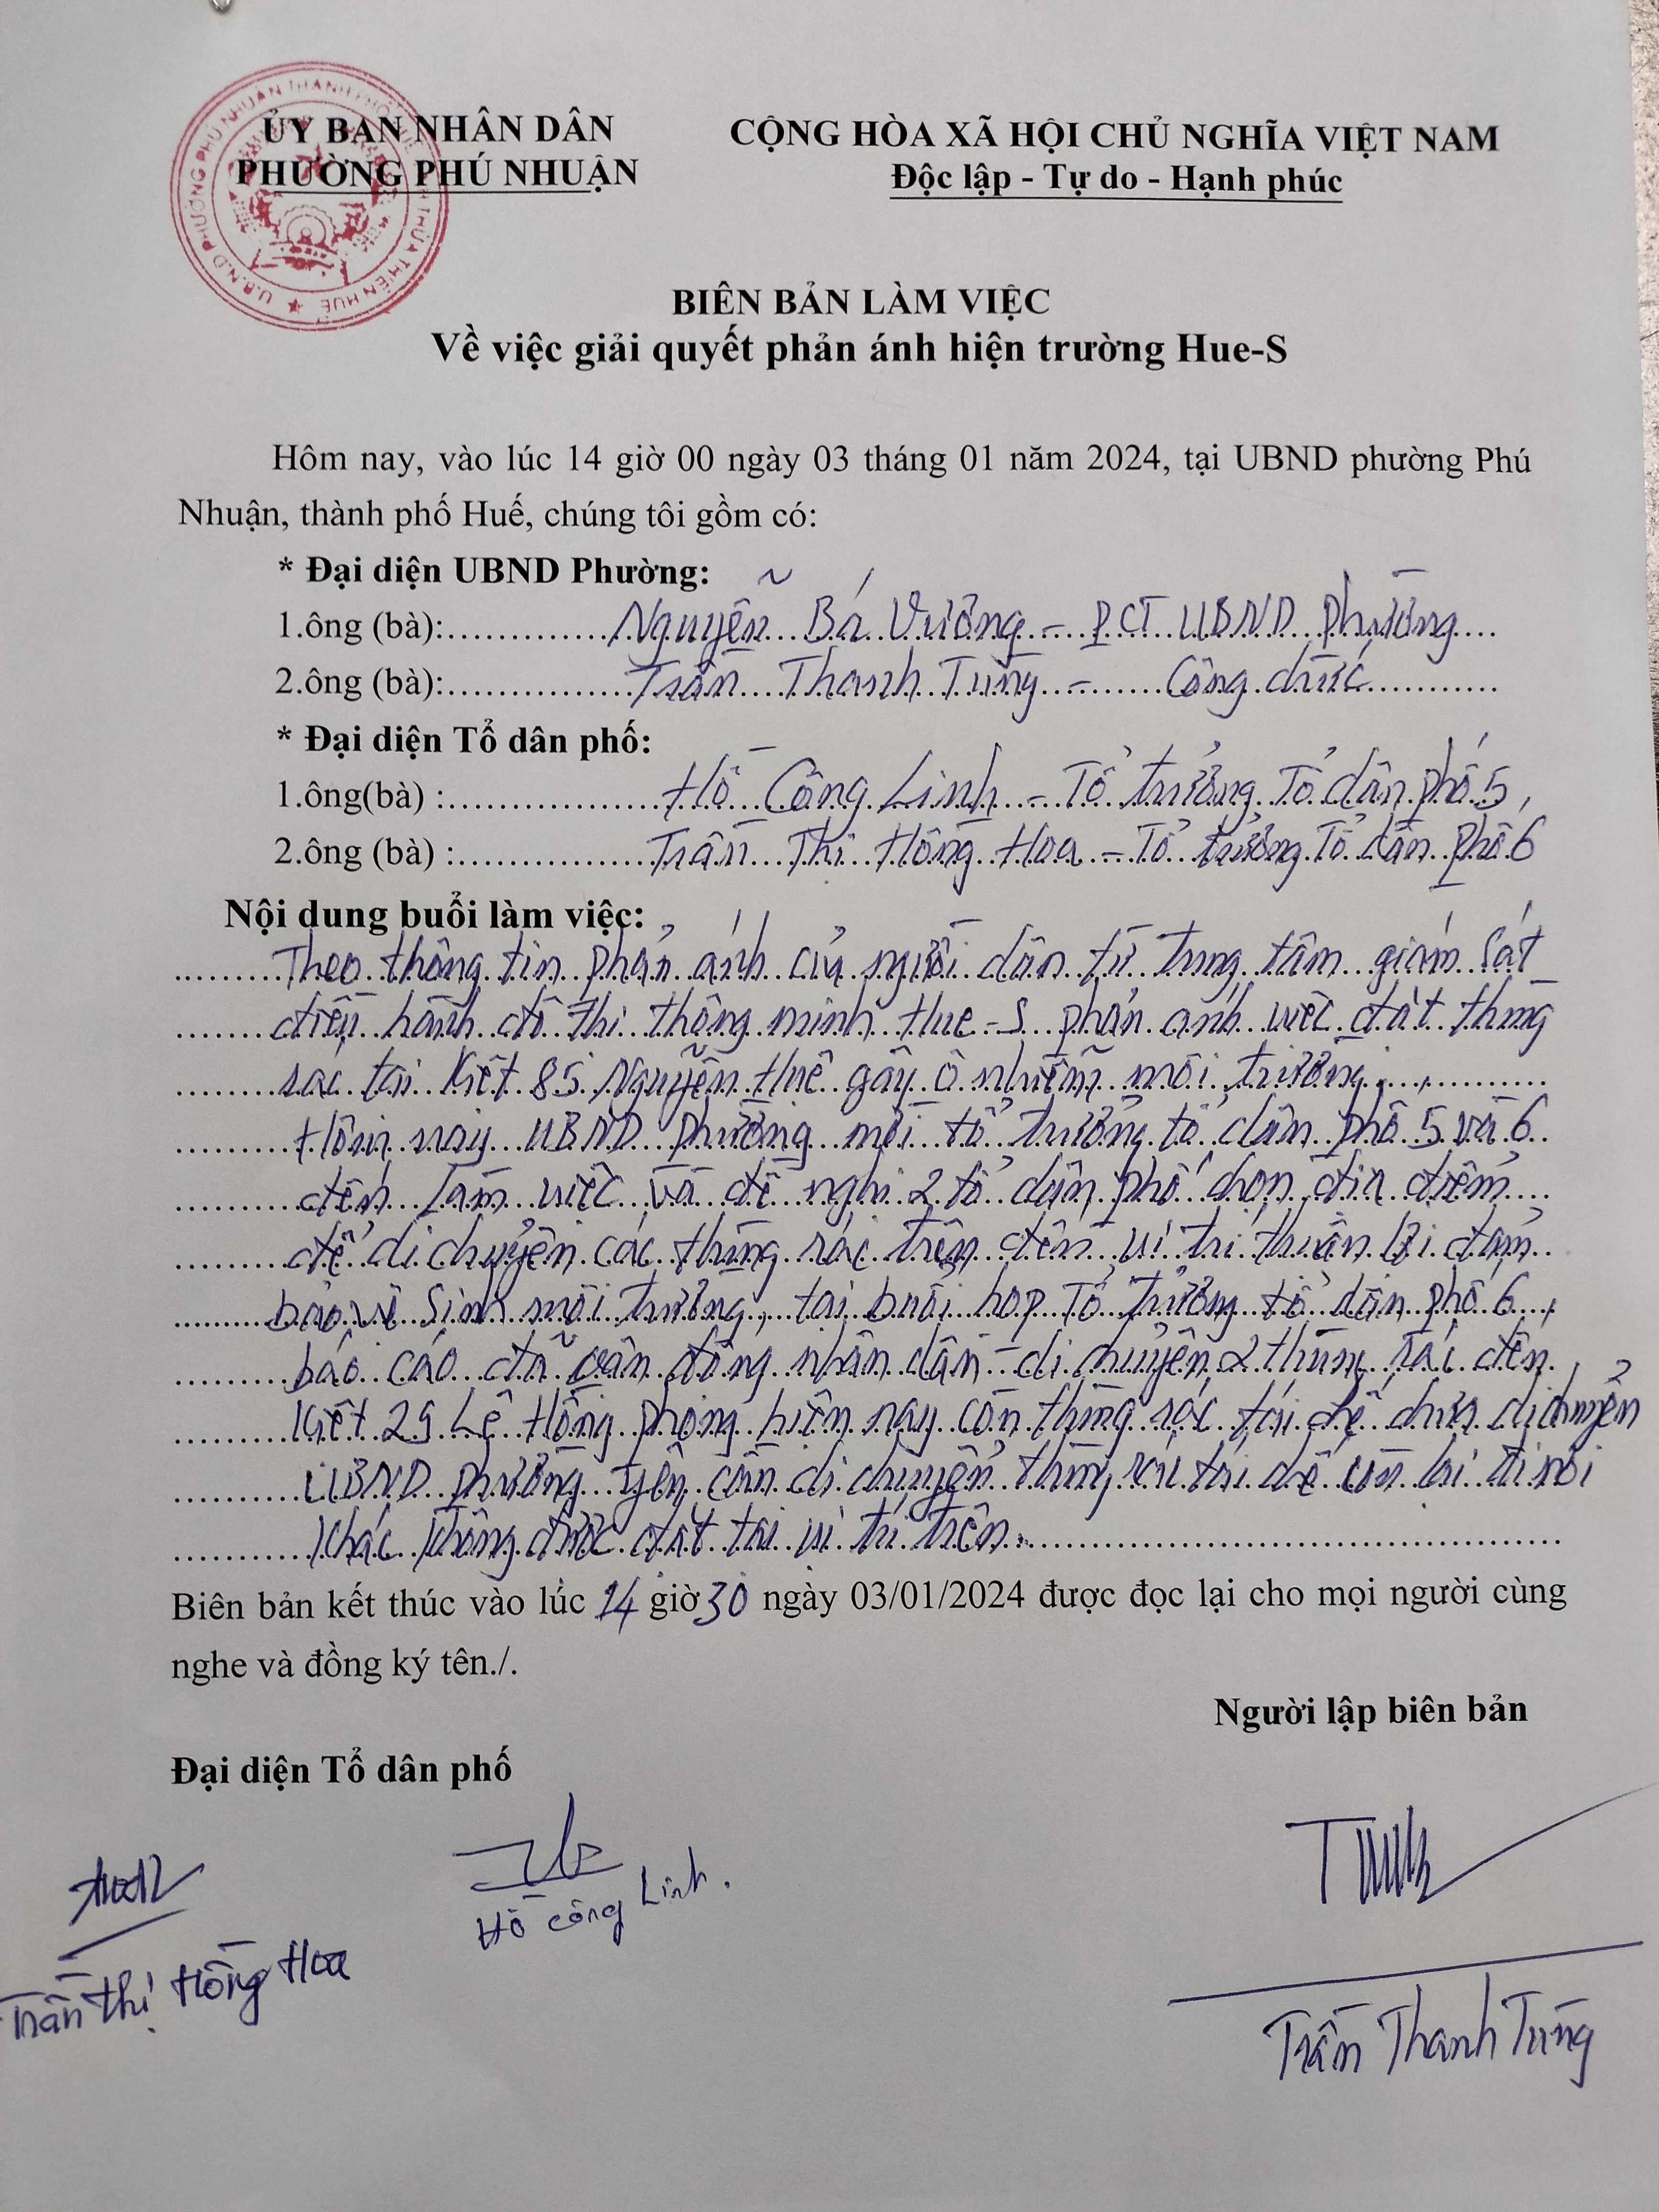 ỦY BAN NHÂN DÂN
PHƯỜNG PHÚ NHUẬN
CỘNG HÒA XÃ HỘI CHỦ NGHĨA VIỆT NAM
Độc lập - Tự do - Hạnh phúc
U.B.N.D PHƯỜNG PHÚ NHUẬN THÀNH PHỐ HUẾ THỪA THIÊN HUẾ
BIÊN BẢN LÀM VIỆC
Về việc giải quyết phản ánh hiện trường Hue-S
Hôm nay, vào lúc 14 giờ 00 ngày 03 tháng 01 năm 2024, tại UBND phường Phú
Nhuận, thành phố Huế, chúng tôi gồm có:
* Đại diện UBND Phường:
1.ông (bà): Nguyễn Bá Vường - PCT UBND phường
2.ông (bà): Trần Thanh Tùng - Công chức
* Đại diện Tổ dân phố:
1.ông(bà) : Hồ Công Linh - Tổ trưởng Tổ dân phố 5,
2.ông (bà) : Trần Thị Hồng Hoa - Tổ trưởng Tổ dân phố 6
Nội dung buổi làm việc:
Theo thông tin phản ánh của người dân từ Trung tâm giám sát
điều hành đô thị thông minh Hue-S phản ánh việc đặt thùng
rác tại Kiệt 85 Nguyễn Huệ gây ô nhiễm môi trường,
Hôm nay UBND phường mời tổ trưởng tổ dân phố 5 và 6
đến làm việc và đề nghị 2 tổ dân phố chọn địa điểm
để di chuyển các thùng rác trên đến vị trí thuận lợi đảm
bảo vệ sinh môi trường, tại buổi họp Tổ trưởng tổ dân phố 6,
báo cáo đã vận động nhân dân di chuyển 2 thùng rác đến
Kiệt 29 Lê Hồng Phong hiện nay còn thùng rác tái chế chưa di chuyển
UBND phường yêu cầu di chuyển thùng rác tái chế còn lại đi nơi
khác không được đặt tại vị trí trên.
Biên bản kết thúc vào lúc 14 giờ 30 ngày 03/01/2024 được đọc lại cho mọi người cùng
nghe và đồng ký tên./.
Người lập biên bản
Đại diện Tổ dân phố
Hồ Công Linh.
Trần Thị Hồng Hoa
Trần Thanh Tùng